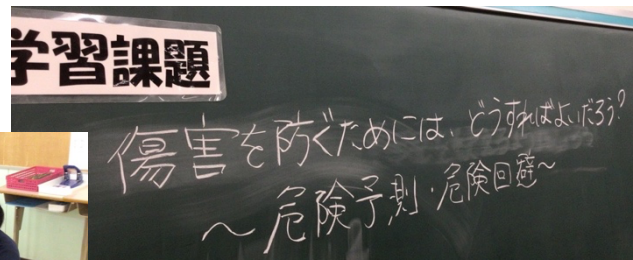 学習課題
傷害を防ぐためには、どうすればよいだろう?
～危険予測・危険回避～